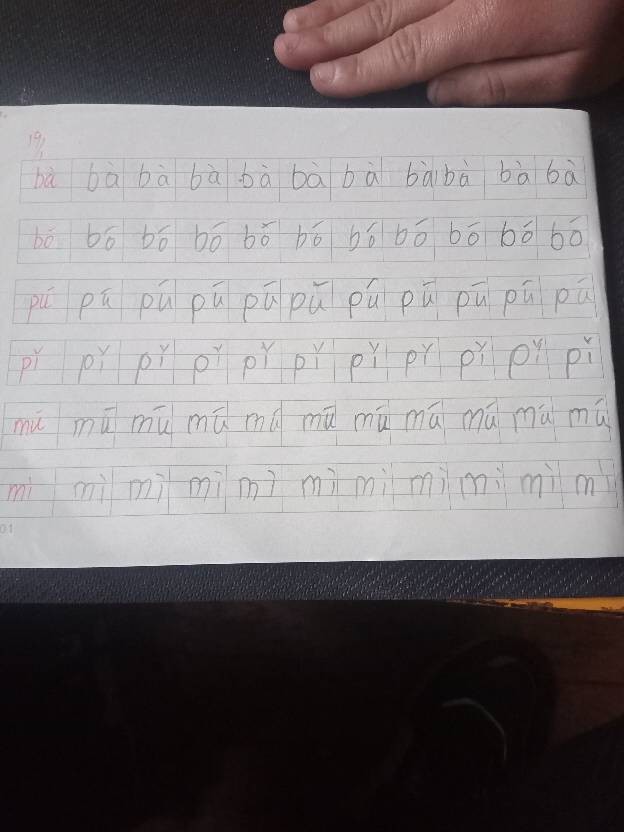 19/1
bà bà bà bà bà bà bà bà bà bà bà
bó bó bó bó bó bó bó bó bó bó bó
pú pú pú pú pú pú pú pú pú pú pú
pǐ pǐ pǐ pǐ pǐ pǐ pǐ pǐ pǐ pǐ pǐ
mú mú mú mú mú mú mú mú mú mú mú
mì mì mì mì mì mì mì mì mì mì mì
01